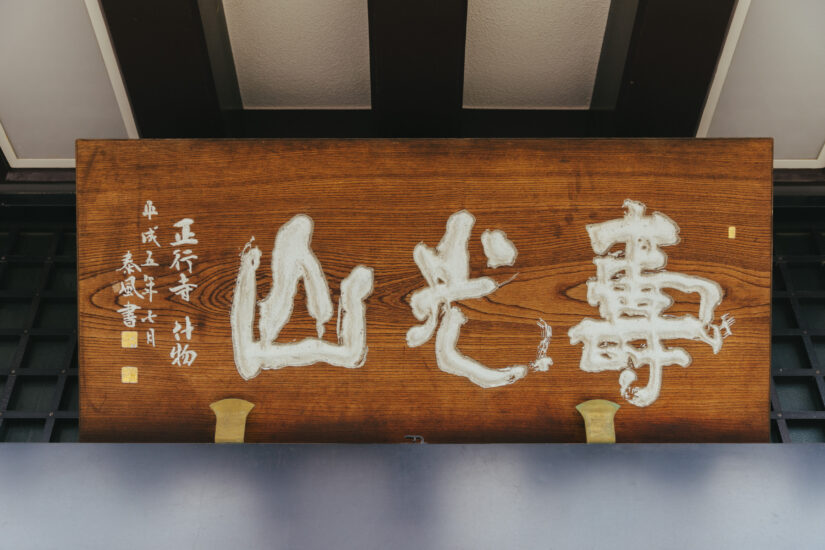 壽光山
正行寺什物
平成五年七月
泰風書